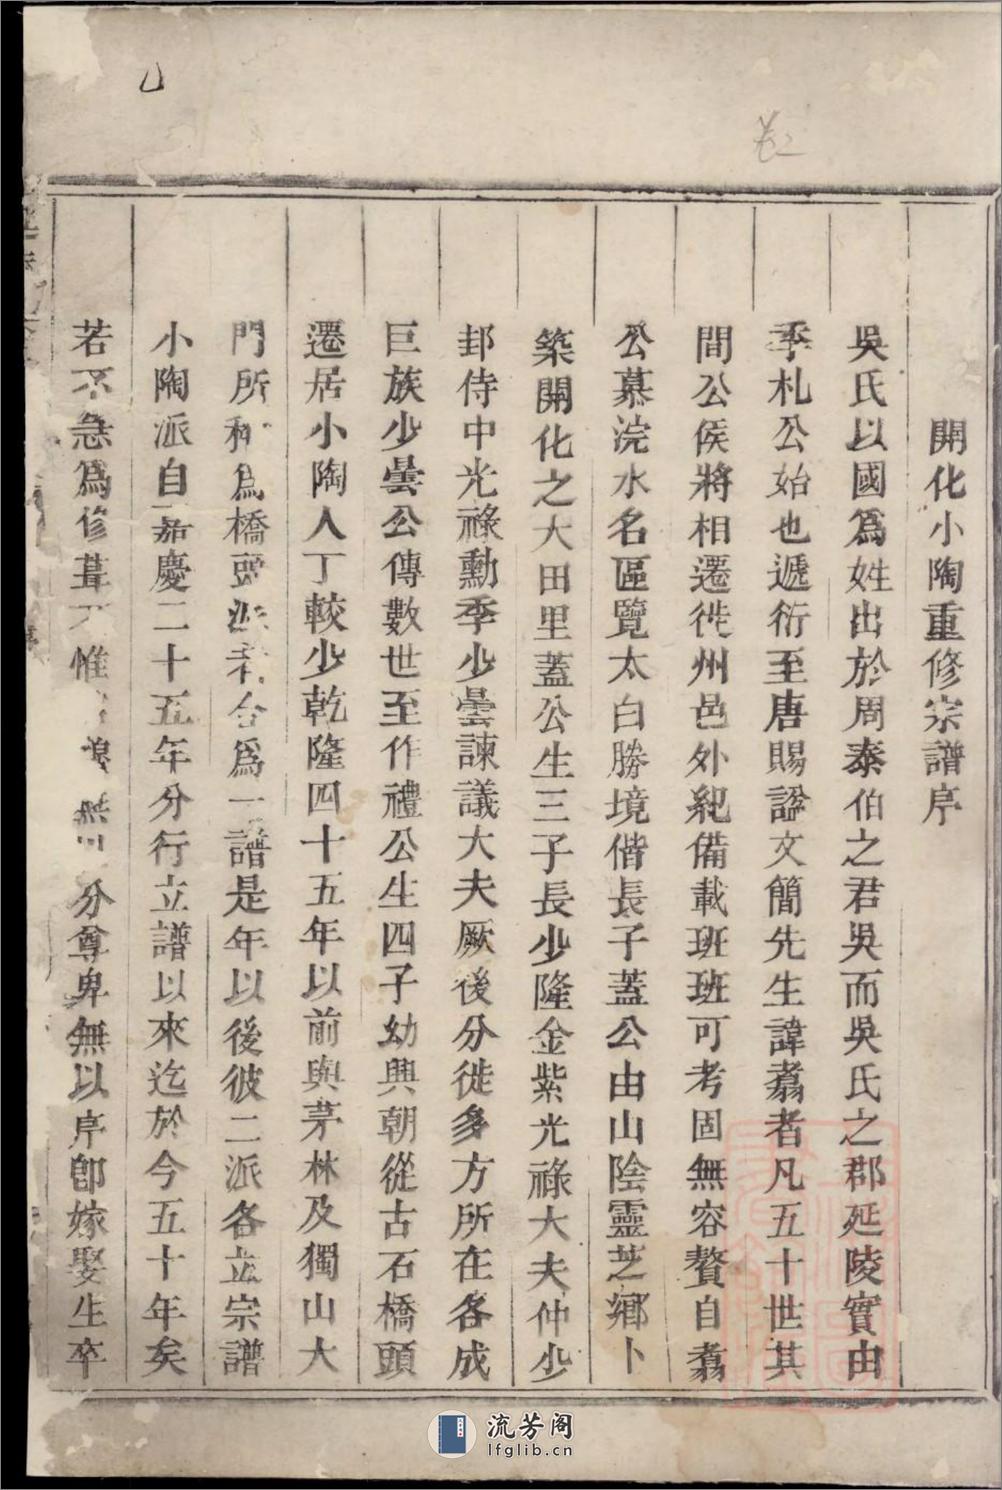 卷2
開化小陶重修宗譜序
吳氏以國爲姓出於周泰伯之君吳而吳氏之郡延陵實由
季札公始也遞衍至唐賜諡文簡先生諱翥者凡五十世其
間公侯將相遷徙州邑外紀備載班班可考固無容贅自翥
公慕浣水名區覽太白勝境偕長子蓋公由山陰靈芝鄉卜
築開化之大田里蓋公生三子長少隆金紫光祿大夫仲少
邽侍中光祿勳季少曇諫議大夫厥後分徙多方所在各成
巨族少曇公傳數世至作禮公生四子幼興朝從古石橋頭
遷居小陶人丁較少乾隆四十五年以前與茅林及獨山大
門所稱爲橋頭派者合爲一譜是年以後彼二派各立宗譜
小陶派自嘉慶二十五年分行立譜以來迄於今五十年矣
若不急爲修葺不惟分尊卑無以序卽嫁娶生卒
流芳阁
lfglib.cn